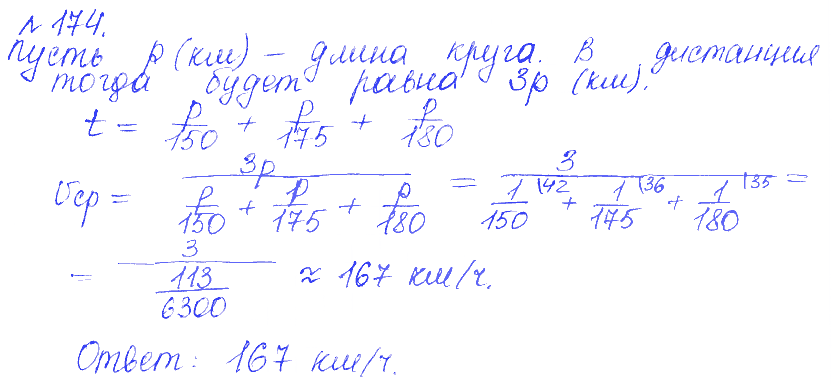 № 174.
Пусть p (км) – длина круга. В дистанция
тогда будет равна 3p (км).
t = p/150 + p/175 + p/180
υср = 3p/(p/150 + p/175 + p/180) = 3/(1/150 \42 + 1/175 \36 + 1/180 \35) =
= 3/(113/6300) ≈ 167 км/ч.
Ответ: 167 км/ч.